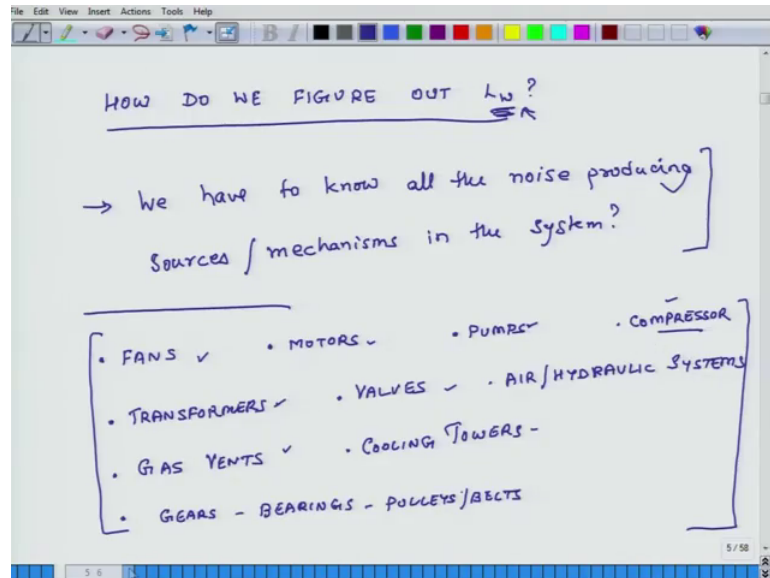 File Edit View Insert Actions Tools Help
B I
HOW DO WE FIGURE OUT LW?
→ We have to know all the noise producing
Sources / mechanisms in the system?
• FANS ✓ • MOTORS ✓ • PUMPS ✓ • COMPRESSOR
• TRANSFORMERS ✓ • VALVES ✓ • AIR/HYDRAULIC SYSTEMS
• GAS VENTS ✓ • COOLING TOWERS -
• GEARS - BEARINGS - PULLEYS/BELTS
5/58
5 6